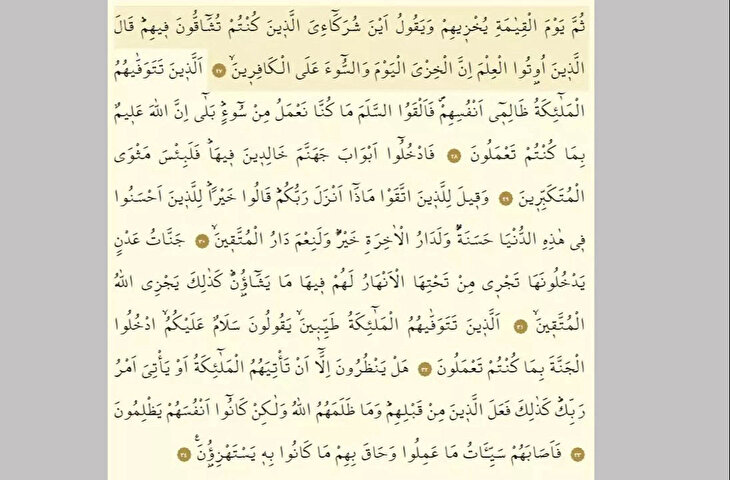 ثُمَّ يَوْمَ الْقِيٰمَةِ يُخْزٖيهِمْ وَيَقُولُ اَيْنَ شُرَكَٓاءِىَ الَّذٖينَ كُنْتُمْ تُشَٓاقُّونَ فٖيهِمْؕ قَالَ
الَّذٖينَ اُو۫تُوا الْعِلْمَ اِنَّ الْخِزْىَ الْيَوْمَ وَالسُّٓوءَ عَلَى الْكَافِرٖينَۙ ﴿٢٧﴾ اَلَّذٖينَ تَتَوَفّٰيهُمُ
الْمَلٰٓئِكَةُ ظَالِمٖٓى اَنْفُسِهِمْࣕ فَاَلْقَوُا السَّلَمَ مَا كُنَّا نَعْمَلُ مِنْ سُٓوءٍؕ بَلٰٓى اِنَّ اللّٰهَ عَلٖيمٌ
بِمَا كُنْتُمْ تَعْمَلُونَ ﴿٢٨﴾ فَادْخُلُٓوا اَبْوَابَ جَهَنَّمَ خَالِدٖينَ فٖيهَاؕ فَلَبِئْسَ مَثْوَى
الْمُتَكَبِّرٖينَ ﴿٢٩﴾ وَقٖيلَ لِلَّذٖينَ اتَّقَوْا مَاذَٓا اَنْزَلَ رَبُّكُمْؕ قَالُوا خَيْراًؕ لِلَّذٖينَ اَحْسَنُوا
فٖى هٰذِهِ الدُّنْيَا حَسَنَةٌؕ وَلَدَارُ الْاٰخِرَةِ خَيْرٌؕ وَلَنِعْمَ دَارُ الْمُتَّقٖينَۙ ﴿٣٠﴾ جَنَّاتُ عَدْنٍ
يَدْخُلُونَهَا تَجْرٖى مِنْ تَحْتِهَا الْاَنْهَارُ لَهُمْ فٖيهَا مَا يَشَٓاؤُ۫نَؕ كَذٰلِكَ يَجْزِى اللّٰهُ
الْمُتَّقٖينَۙ ﴿٣١﴾ اَلَّذٖينَ تَتَوَفّٰيهُمُ الْمَلٰٓئِكَةُ طَيِّبٖينَۙ يَقُولُونَ سَلَامٌ عَلَيْكُمُۙ ادْخُلُوا
الْجَنَّةَ بِمَا كُنْتُمْ تَعْمَلُونَ ﴿٣٢﴾ هَلْ يَنْظُرُونَ اِلَّٓا اَنْ تَأْتِيَهُمُ الْمَلٰٓئِكَةُ اَوْ يَأْتِىَ اَمْرُ
رَبِّكَؕ كَذٰلِكَ فَعَلَ الَّذٖينَ مِنْ قَبْلِهِمْؕ وَمَا ظَلَمَهُمُ اللّٰهُ وَلٰكِنْ كَانُٓوا اَنْفُسَهُمْ يَظْلِمُونَ
﴿٣٣﴾ فَاَصَابَهُمْ سَيِّـَٔاتُ مَا عَمِلُوا وَحَاقَ بِهِمْ مَا كَانُوا بِهٖ يَسْتَهْزِؤُ۫نَࣖ ﴿٣٤﴾